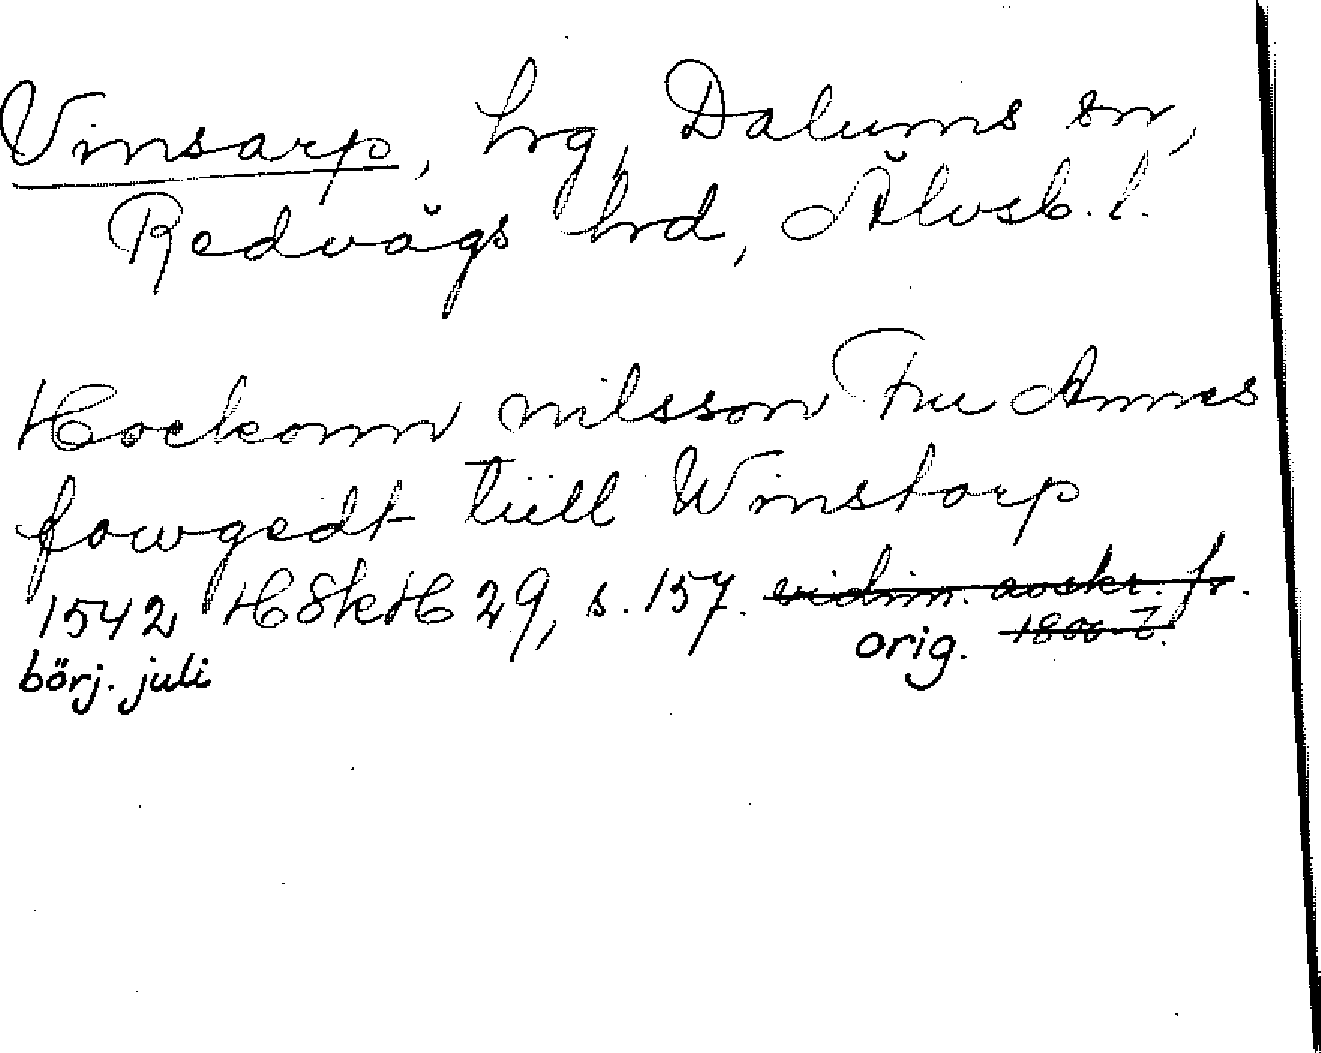 Vinsarp, hrg, Dalums sn,
Redvägs hrd, Älvsb. l.
Hoekonn nilsson Fru Annes
fowgedt tiill Winstorp
1542 HSkH 29, s. 157. vidim. avskr. fr.
börj. juli orig. 1800-t.